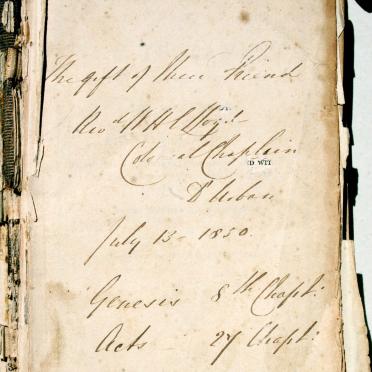 The gift of their Friend
Revd W H C Lloyd
Colo al Chaplain
D WIT
D'Urban
July 13 - 1850.
Genesis 8th Chapt:
Acts - 27 Chapt: